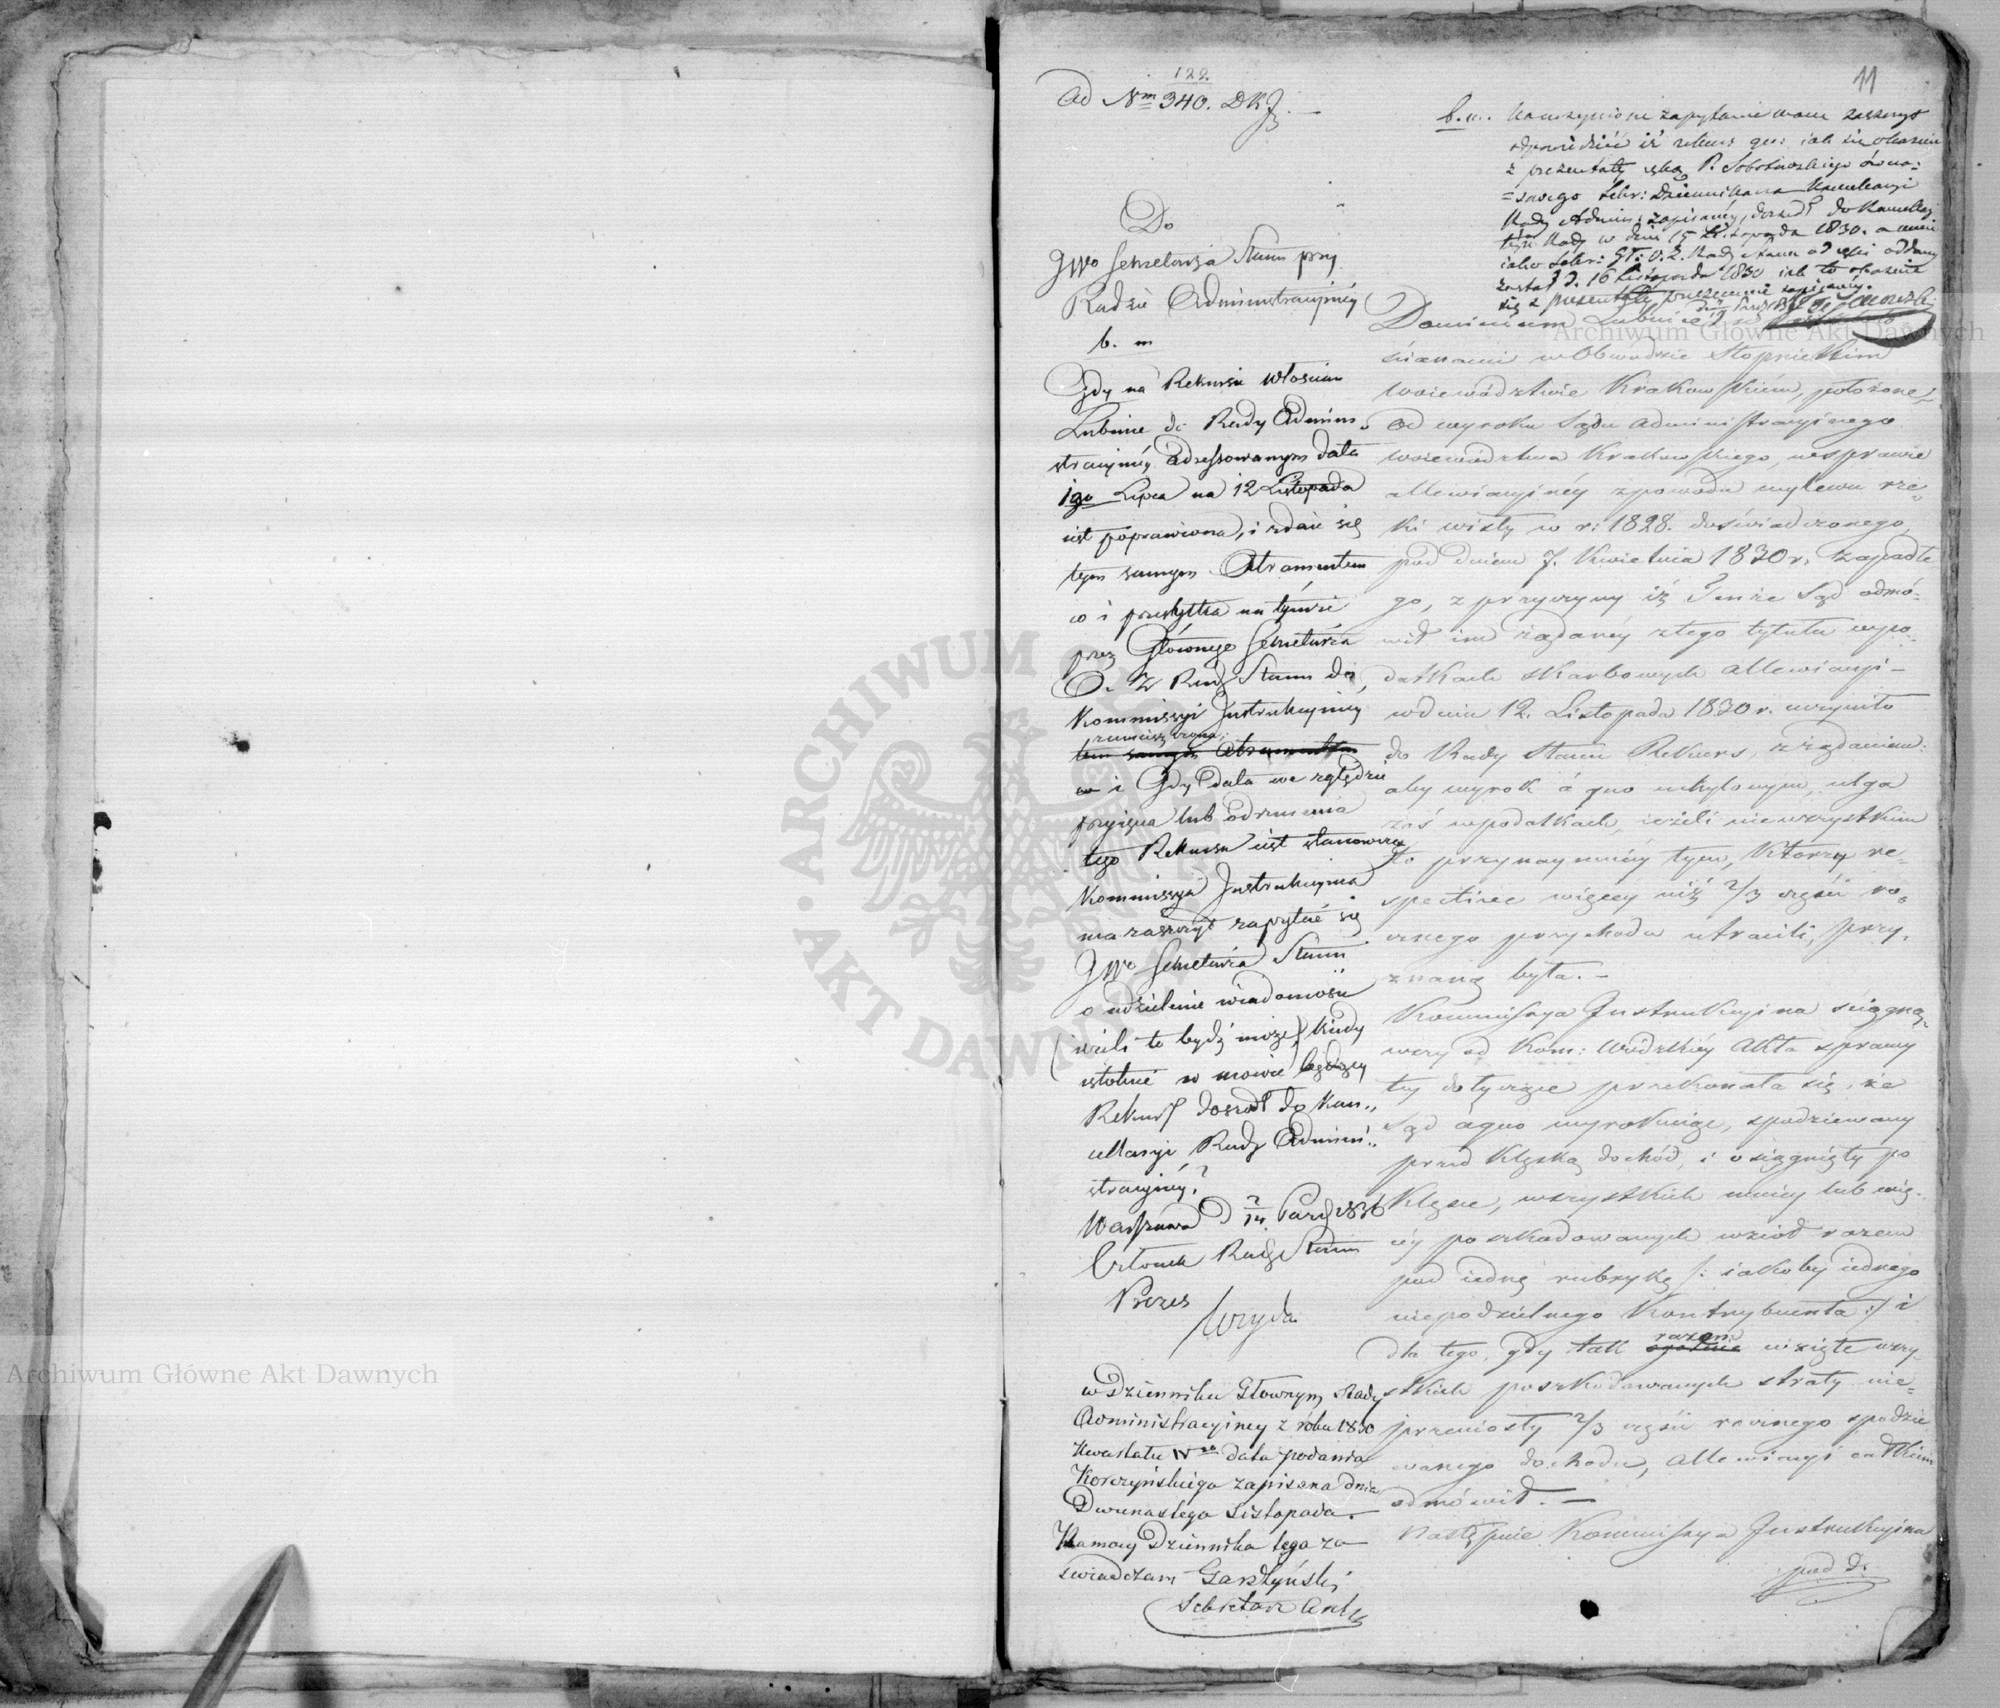 11
122.
ad Nm 340. DKJ.
b.u. Na uczynione zapytanie mam zaszczyt
odpowiedzieć iż rekurs qu: iak się okazuie
z prezentaty ręką P. Sobolewskiego ówcze=
=snego Sekr: Dziennikarza Kancellaryi
Rady Admin: zapisanéy, doszedł do Kancellaryi
téjże Rady w dniu 15 Listopada 1830. a mnie
iako Sekr: Gł: O.Z. Rady Stanu od ręki oddany
został d. 16 Listopada 1830 iak to okazuie
się z prezentaty przezemnie zapisanéy.
Do
JWo Sekretarza Stanu przy
Radzie Administracyinéy
b. m
Gdy na Rekursie włościan
Lubnic do Rady Admini
stracyinéy adressowanym data
1go Lipca na 12 Listopada
iest poprawiona, i zdaie się
tym samym Atramentem
co i przesyłka na tymże
przez Głównego Sekretarza
O. Z Rady Stanu do
Kommissyi Instrukcyiney
zamieszczona;
tem samym Atramentem
co i Gdy data we względzie
przyięcia lub odrzucenia
tego Rekursu iest stanowczą
Kommissya Instrukcyina
ma zaszczyt zapytać się
JWo Sekretarza Stanu
o udzielenie wiadomości
(ieżeli to bydź może) kiedy
istotnie w mowie będący
Rekurs doszedł do Kan-
cellaryi Rady Admini-
stracyinéy?
Warszawa D 2/14 Paźd 1836
Członek Rady Stanu
Prezes
Wyczda
w Dzienniku Głownym Rady
Administracyiney z roku 1830
Kwartału IVgo data podania
Korczyńskiego zapisana dnia
Dwunastego Listopada.
Na mocy Dziennika tego za
świadczam Garszyński
Sekretarz Arch
Dominium Lubnice z
ścianami w Obwodzie Stopnickim
województwie Krakowskiém, położone,
od wyroku Sądu Administracyinego
województwa Krakowskiego, w sprawie
allewiacyinéy z powodu wylewu rze-
ki wisły w r: 1828. doświadczonego,
pod dniem 7. Kwietnia 1830 r. zapadłe
go, z przyczyny iż Tenże Sąd odmó-
wił im żądanéy z tego tytułu w po-
datkach skarbowych allewiacyi -
w dniu 12. Listopada 1830 r. uczyniło
do Rady Stanu Rekurs, z żądaniem:
aby wyrok à quo uchylonym, ulga
zaś w podatkach, ieżeli nie wszystkim
to przynaymniéy tym, którzy re-
spective więcey niż 2/3 części ro-
cznego przychodu utracili, przy-
znaną była. -
Kommissya Instrukcyina ściągną-
wszy od Kom: Wdzkiéy Akta sprawy
téy dotyczące przekonała się, że
Sąd à quo wyrokuiąc, spodziewany
przed klęską dochód, i osiągnięty po
klęsce, wszystkich mniey lub wię-
céy poszkodowanych wziął razem
pod iedną rubrykę /: iakoby iednego
niepodzielnego Kontrybuenta :/ i
dla tego, gdy tak razem wzięte wszy-
stkich poszkodowanych straty nie-
przeniosły 2/3 części rocznego spodzie
wanego dochodu, Allewiacyi całkiem
odmówił. -
Następnie Kommissya Instrukcyina
pod d.
ARCHIWUM GŁÓWNE AKT DAWNYCH
Archiwum Główne Akt Dawnych
Archiwum Główne Akt Dawnych